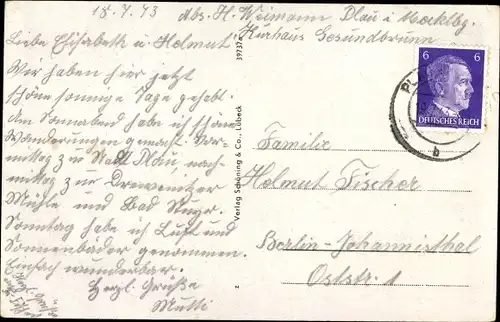 18.7.43 Abs. H. Weimann Plau i Mecklbg.
Kurhaus Gesundbrunn
Liebe Elisabeth u. Helmut
Wir haben hier jetzt
schöne sonnige Tage gehabt.
Am Sonnabend habe ich schöne
Wanderungen gemacht. Vor-
mittag zu Stadt Plau, nach-
mittag zur
Mühle und Bad Stuer.
Sonntag habe ich Luft und
Sonnenbäder genommen.
Einfach wunderbar.
Herzl. Grüße
Mutti
39737
Verlag Schöning & Co., Lübeck
z
6 6
DEUTSCHES REICH
PL
b
Familie
Helmut Fischer
Berlin-Johannisthal
Oststr. 1